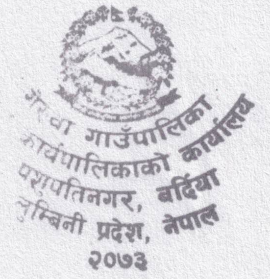 गेरुवा गाउँपालिका
कार्यपालिकाको कार्यालय
पशुपतिनगर, बर्दिया
लुम्बिनी प्रदेश, नेपाल
२०७३